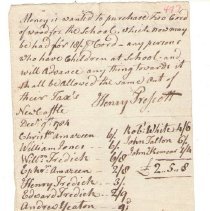 Money is wanted to purchase two Cord
of wood for the School, which now may
be had for 18/ P Cord – any persons
who have Children at School – and
will Advance any thing towards it
shall be allowed the same out of
their Tax's Henry Prescott
New Castle
Dec
Christ Amazeen 6/ Rob White 4/6
William Jones 6/ John Tolton 6/
Will Fredick 6/8 John
Eph Amazeen 2/8 £2.5.8
Henry Fredick
Edward Fredick
Andrew Yeaton